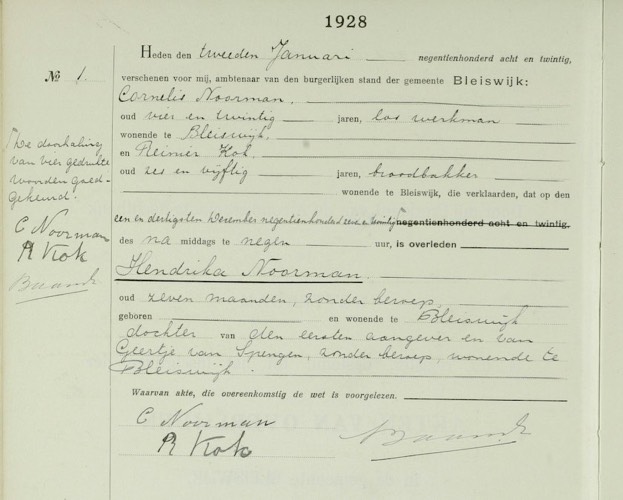 1928
Heden den tweeden Januari negentienhonderd acht en twintig,
№ 1.
verschenen voor mij, ambtenaar van den burgerlijken stand der gemeente Bleiswijk:
Cornelis Noorman.
oud vier en twintig jaren, los werkman
wonende te Bleiswijk.
en Reinier Kok.
oud zes en vijftig jaren, broodbakker
wonende te Bleiswijk, die verklaarden, dat op den
een en dertigsten December negentienhonderd zeven en twintig negentienhonderd acht en twintig,
des na middags te negen uur, is overleden
Hendrika Noorman.
oud zeven maanden, zonder beroep,
geboren en wonende te Bleiswijk
dochter van den eersten aangever en van
Geertje van Spengen, zonder beroep, wonende te
Bleiswijk.
Waarvan akte, die overeenkomstig de wet is voorgelezen.
C Noorman
R Kok
De doorhaling
van vier gedrukte
woorden goed-
gekeurd.
C Noorman
R Kok